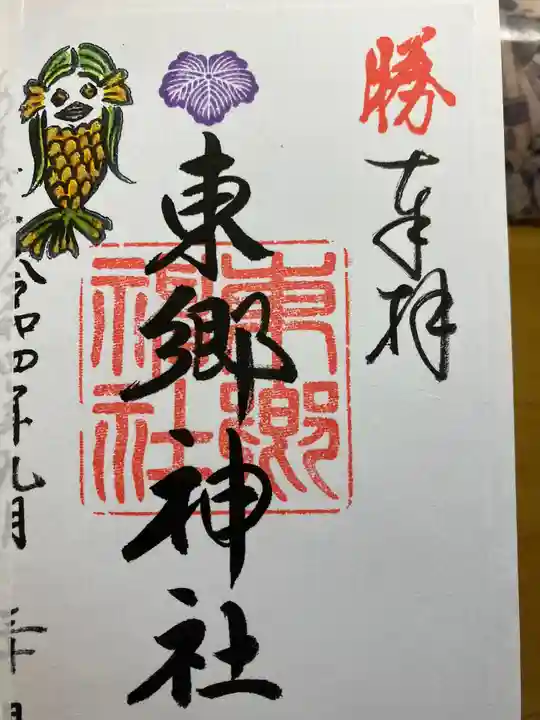 勝
奉拝
東郷神社
東郷神社
令和四年九月二十日